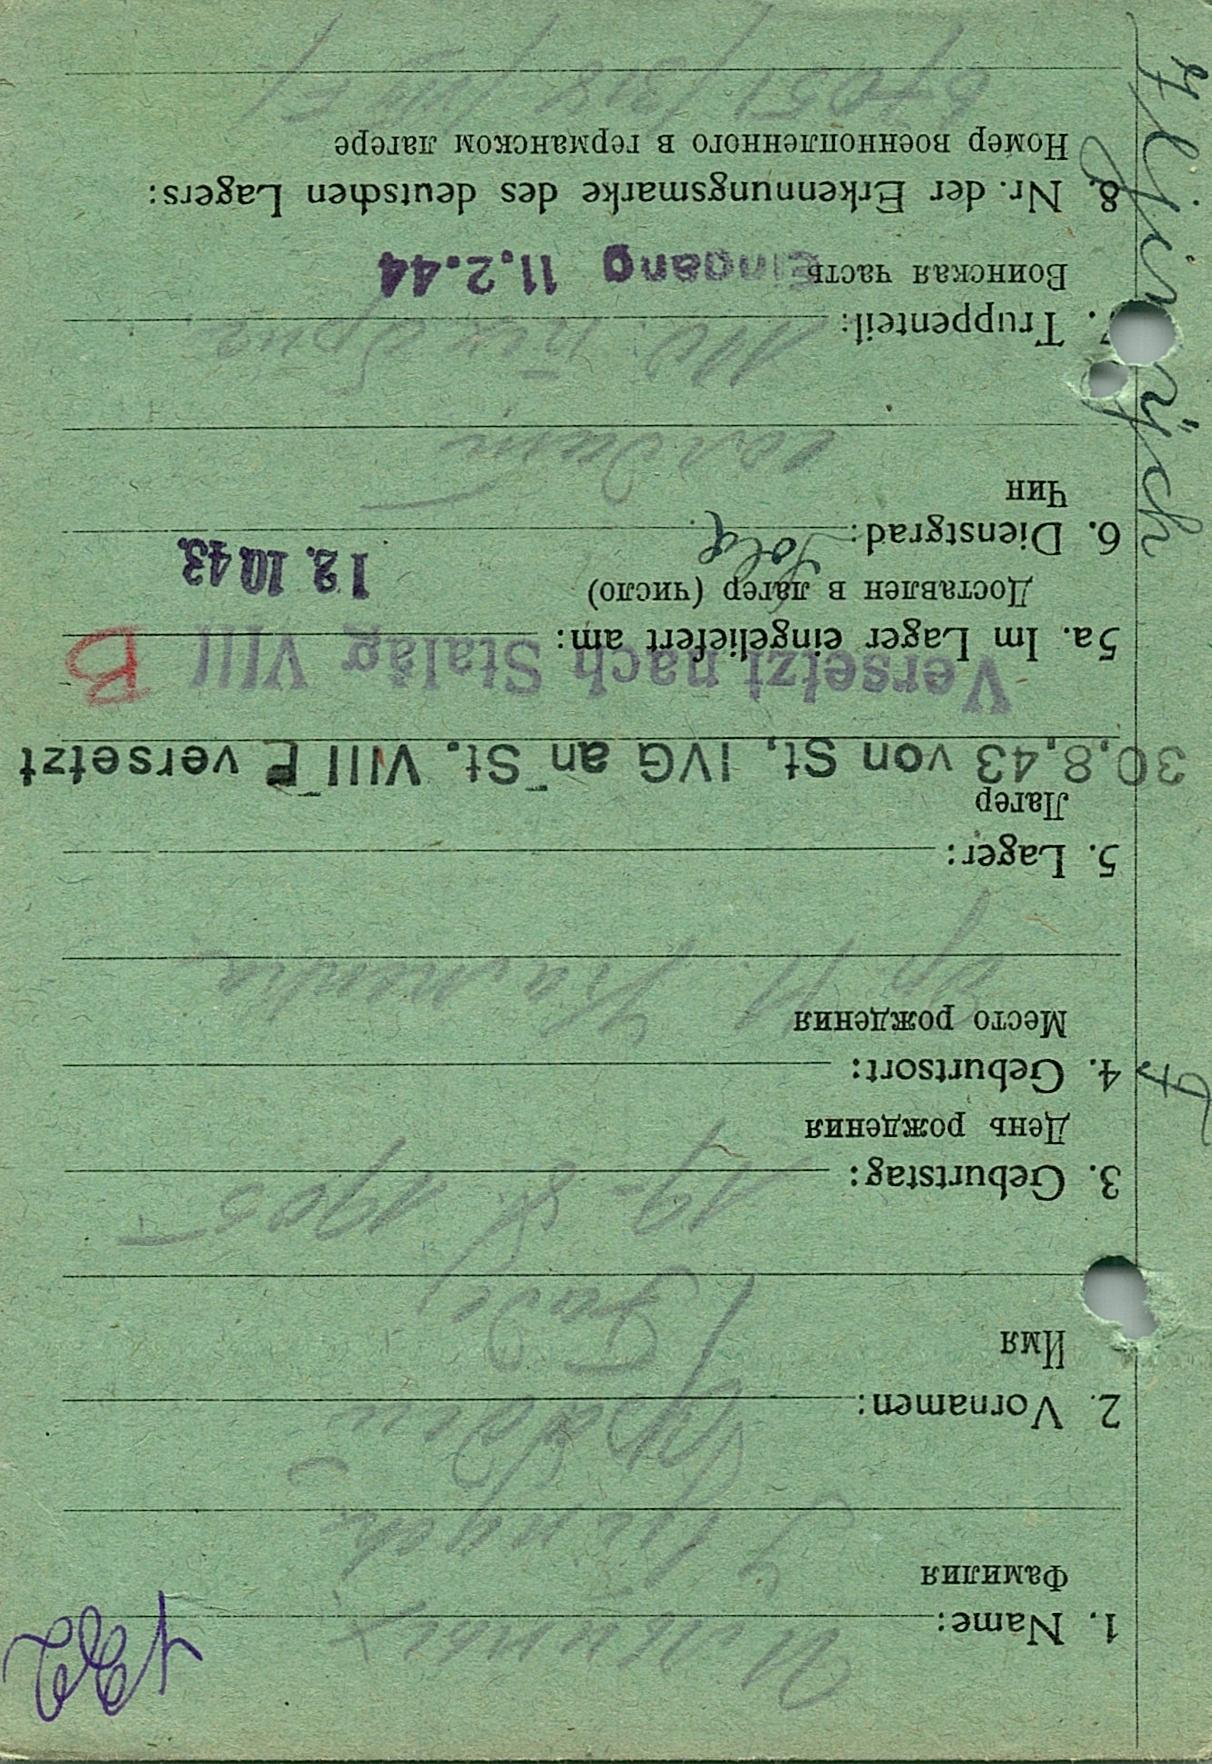 1. Name:
Фамилия
Iljinych
2. Vornamen:
Имя
3. Geburtstag: 19 - 8. 1905
День рождения
4. Geburtsort:
Место рождения
5. Lager:
Лагер
30.8.43 von St. IVG an St. VIII E versetzt
Versetzt nach Stalag VIII B
5a. Im Lager eingeliefert am:
Доставлен в лагер (число) 12. 10. 43.
6. Dienstgrad: Sold.
Чин
солдат
7. Truppenteil:
Воинская часть Eingang 11.2.44
8. Nr. der Erkennungsmarke des deutschen Lagers:
Номер военнопленного в германском лагере
Iljinych